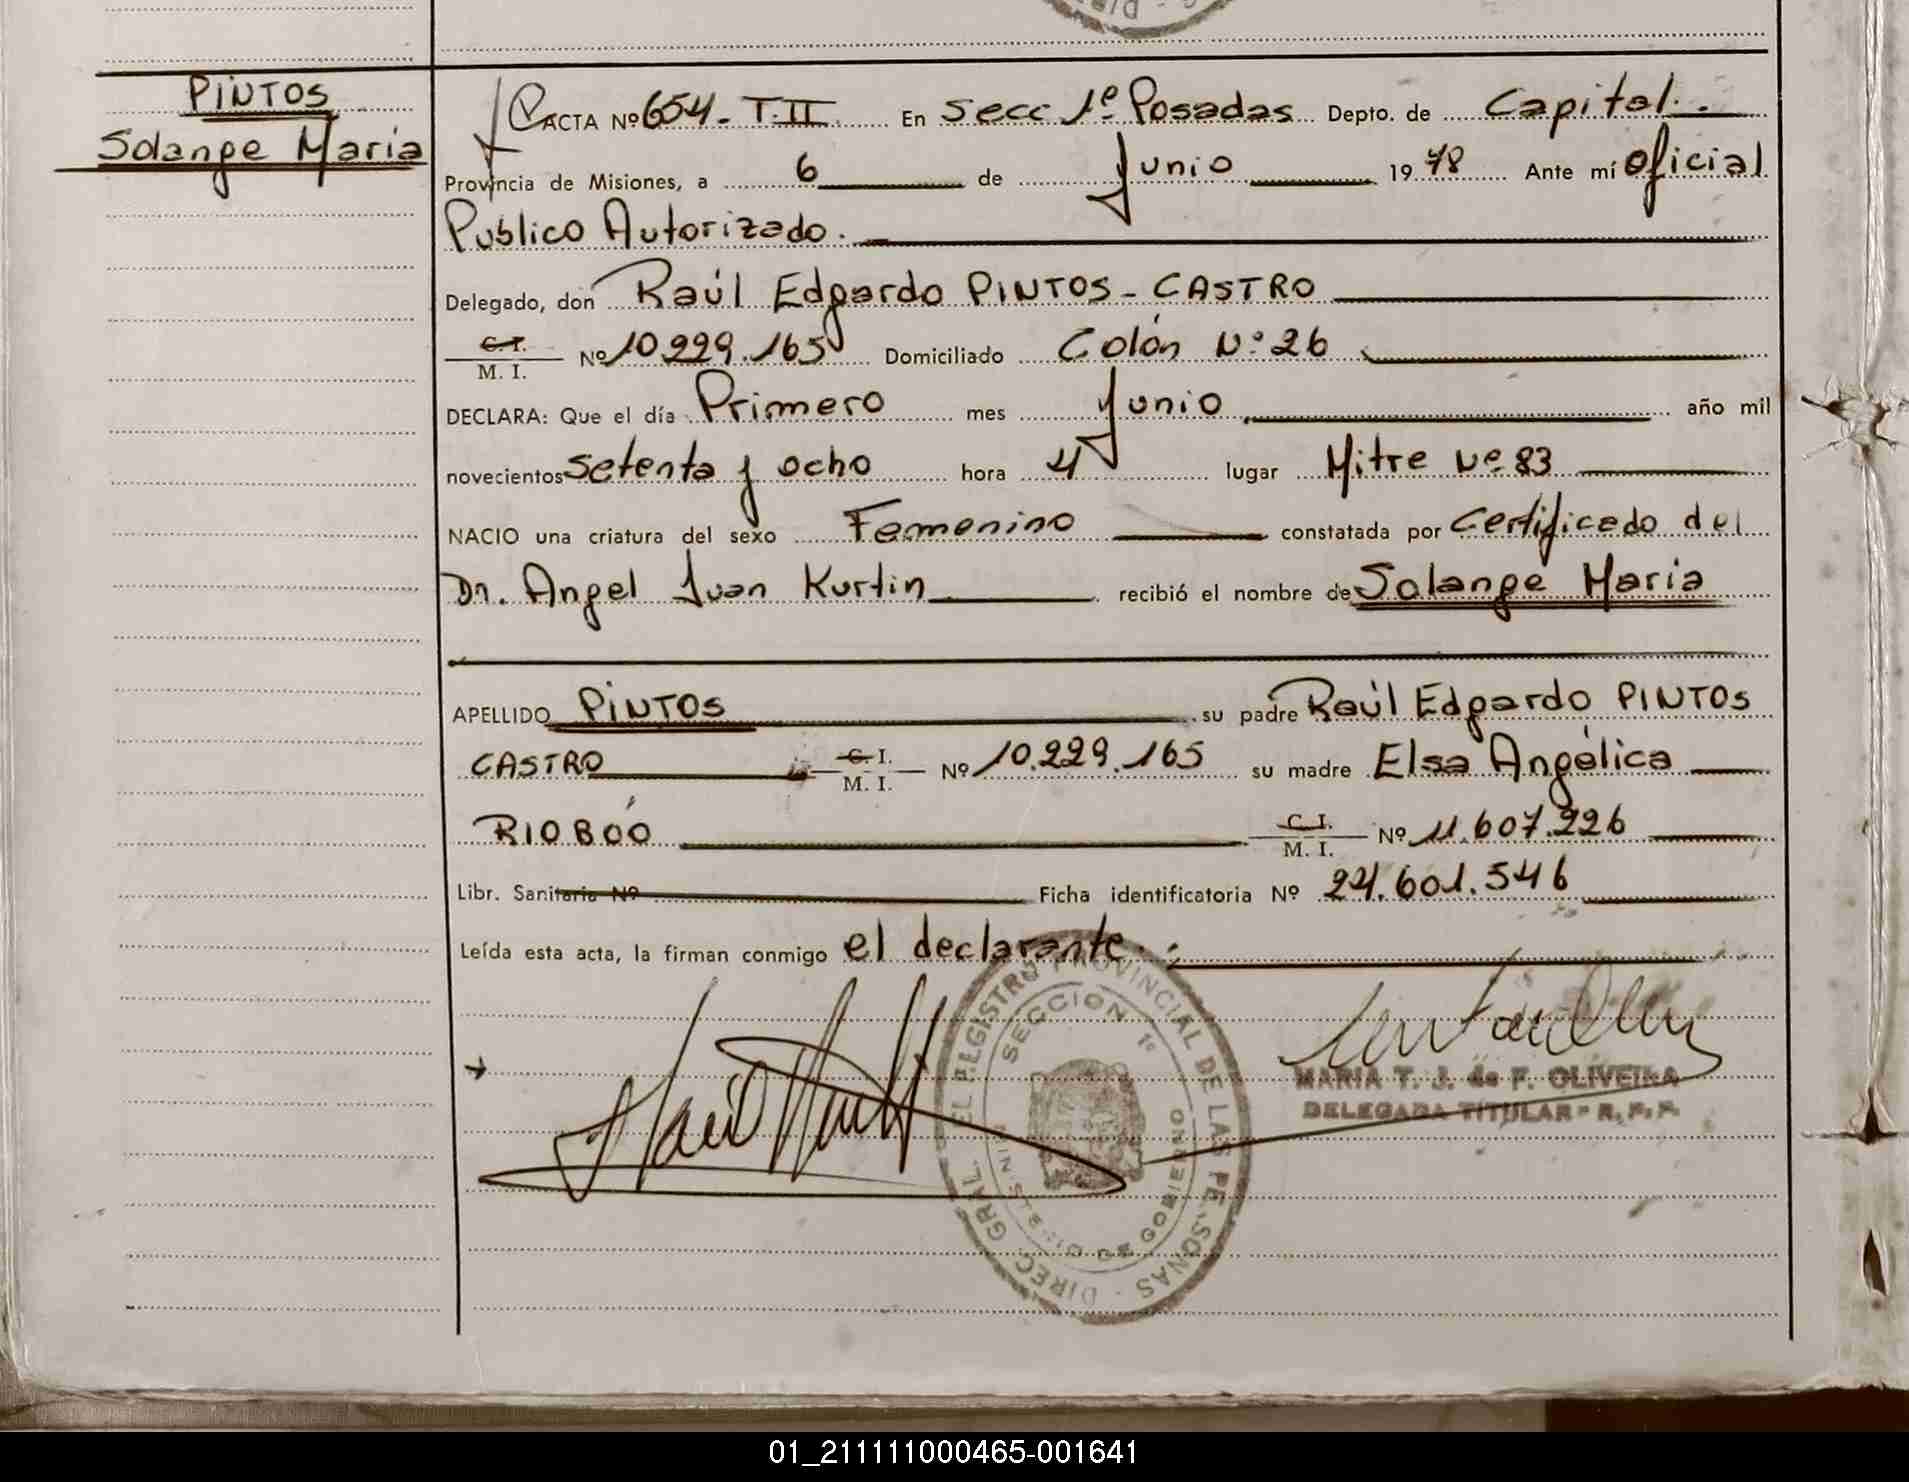 PINTOS
Solange Maria
ACTA Nº 654 - T. II En Secc 1º Posadas Depto. de Capital.
Provincia de Misiones, a 6 de Junio 1978 Ante mí oficial
Publico Autorizado.
Delegado, don Raúl Edgardo PINTOS - CASTRO
C. I. / M. I. Nº 10.229.165 Domiciliado Colón Nº 26
DECLARA: Que el día Primero mes Junio año mil
novecientos setenta y ocho hora 4 lugar Mitre Nº 83
NACIO una criatura del sexo Femenino constatada por Certificado del
Dr. Angel Juan Kurtin recibió el nombre de Solange Maria
APELLIDO PINTOS su padre Raúl Edgardo PINTOS
CASTRO C. I. / M. I. Nº 10.229.165 su madre Elsa Angélica
RIOBÓO C. I. / M. I. Nº 11.607.226
Libr. Sanitaria Nº Ficha identificatoria Nº 24.601.546
Leída esta acta, la firman conmigo el declarante.
DIREC. GRAL. DEL REGISTRO PROVINCIAL DE LAS PERSONAS
SECCION 1º
MINISTERIO DE GOBIERNO
MARIA T. J. de F. OLIVEIRA
DELEGADA TITULAR - R. P. P.
01_211111000465-001641